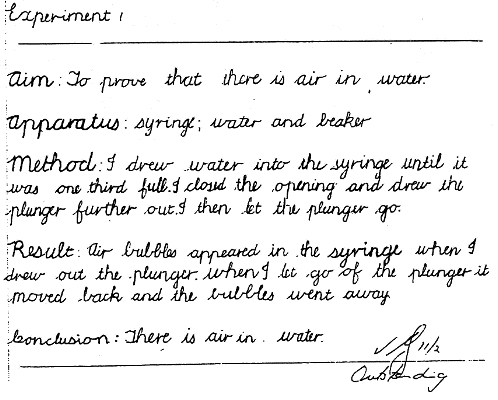 Experiment 1
Aim: To prove that there is air in water.
Apparatus: syringe; water and beaker
Method: I drew water into the syringe until it
was one third full. I closd the opening and drew the
plunger further out. I then let the plunger go.
Result: Air bubbles appeared in the syringe when I
drew out the plunger. when I let go of the plunger it
moved back and the bubbles went away
Conclusion: There is air in water.
11/2
Outstanding